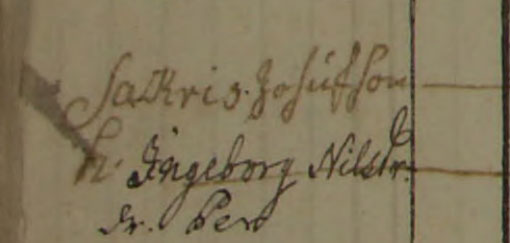 Sakris. Johufson
h. Ingeborg Nilsdr.
dr. Per